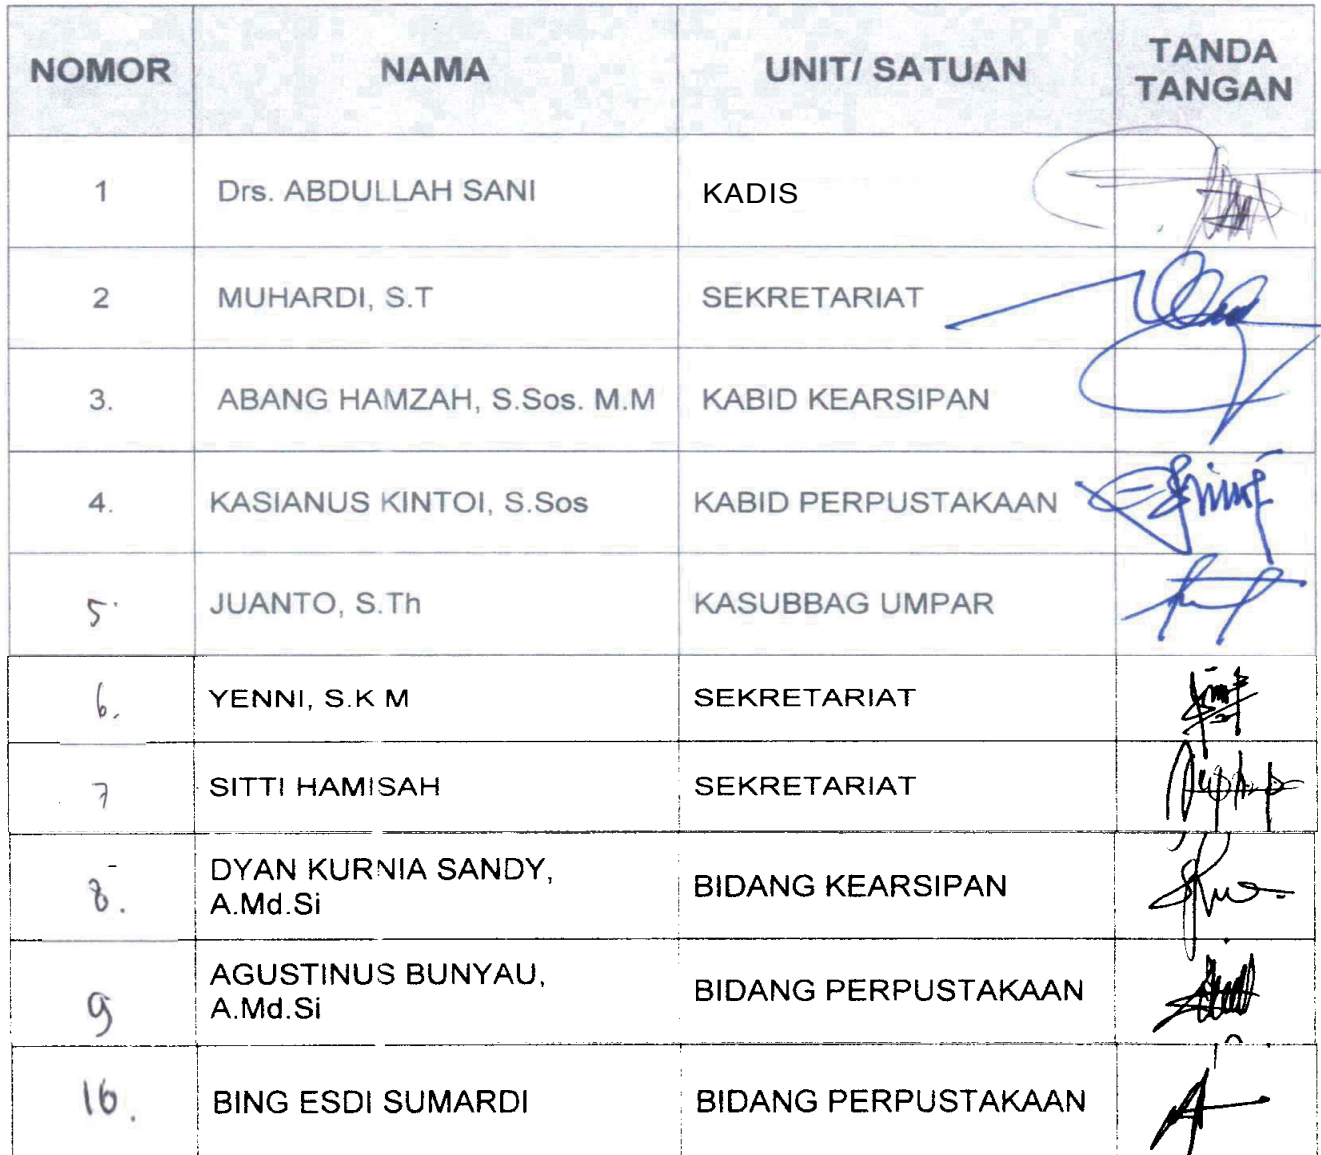 NOMOR NAMA UNIT/ SATUAN TANDA
TANGAN
1 Drs. ABDULLAH SANI KADIS
2 MUHARDI, S.T SEKRETARIAT
3. ABANG HAMZAH, S.Sos. M.M KABID KEARSIPAN
4. KASIANUS KINTOI, S.Sos KABID PERPUSTAKAAN
5. JUANTO, S.Th KASUBBAG UMPAR
6. YENNI, S.K M SEKRETARIAT
7 SITTI HAMISAH SEKRETARIAT
8. DYAN KURNIA SANDY, BIDANG KEARSIPAN
A.Md.Si
9 AGUSTINUS BUNYAU, BIDANG PERPUSTAKAAN
A.Md.Si
10. BING ESDI SUMARDI BIDANG PERPUSTAKAAN